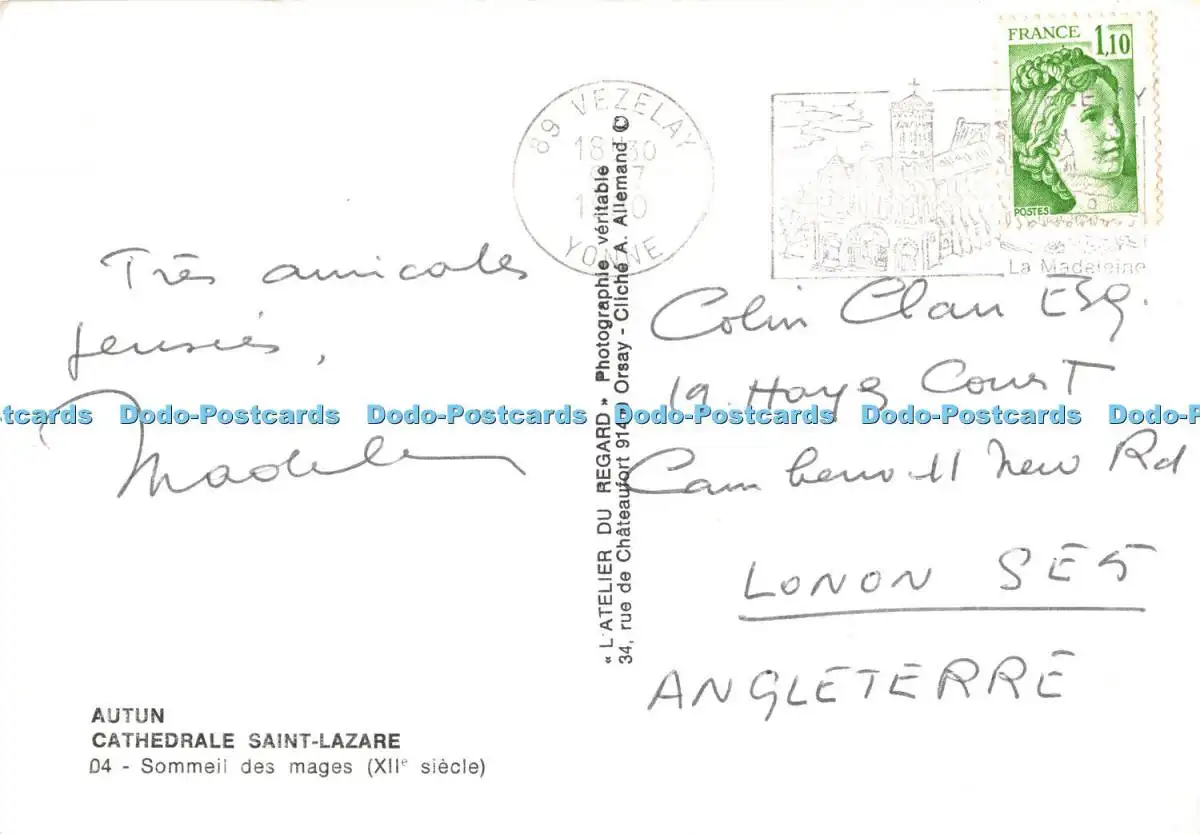 FRANCE 1,10
POSTES
89 VEZELAY
18 H 30
YONNE
La Madeleine
Très amicales
pensées,
Colin Clan Esq.
19 Hays Court
Camberwell New Rd
LONON SE5
ANGLETERRE
« L'ATELIER DU REGARD » Photographie véritable
34, rue de Châteaufort 914 Orsay - Cliché A. Allemand ©
AUTUN
CATHEDRALE SAINT-LAZARE
04 - Sommeil des mages (XIIe siècle)
Dodo-Postcards Dodo-Postcards Dodo-Postcards Dodo-Postcards